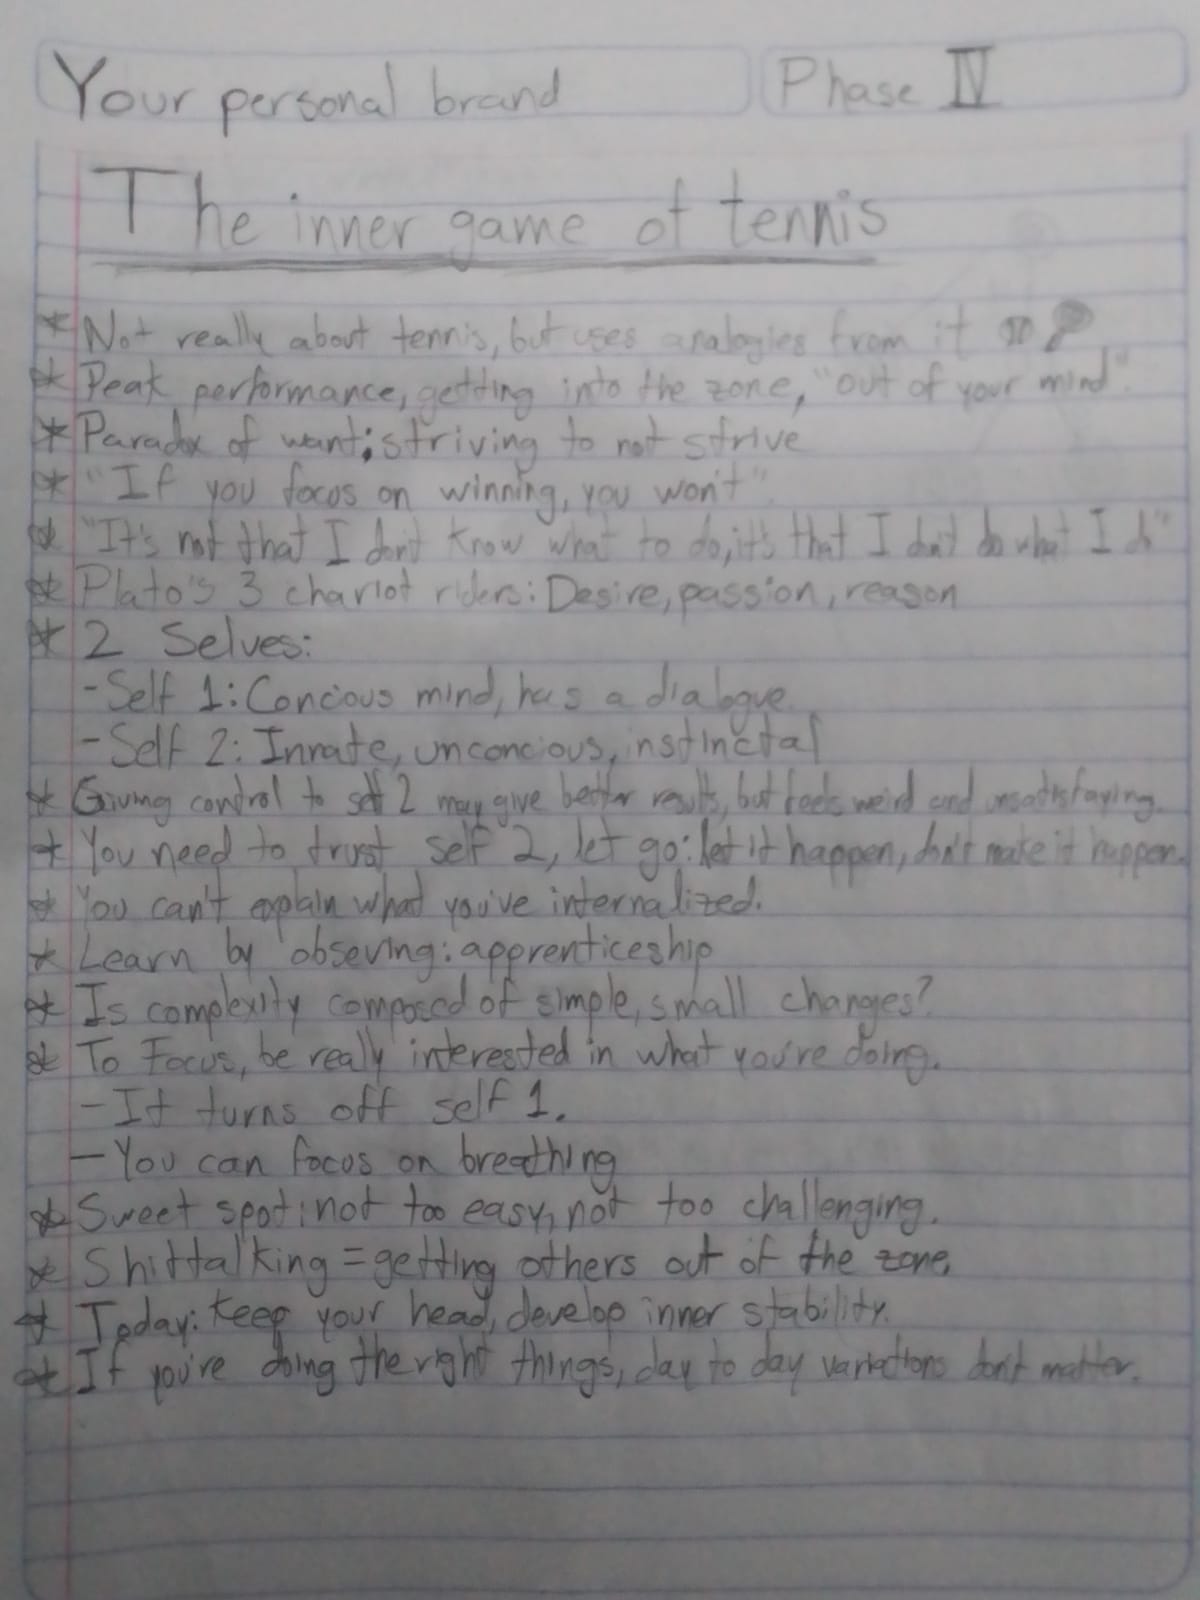 Your personal brand
Phase IV
The inner game of tennis
* Not really about tennis, but uses analogies from it
* Peak performance, getting into the zone, "out of your mind".
* Paradox of want: striving to not strive
* "If you focus on winning, you won't".
* "It's not that I don't know what to do, it's that I don't do what I do"
* Plato's 3 chariot riders: Desire, passion, reason
* 2 Selves:
- Self 1: Concious mind, has a dialogue.
- Self 2: Innate, unconcious, instinctal
* Giving control to self 2 may give better results, but feels weird and unsatisfaying.
* You need to trust self 2, let go: let it happen, don't make it happen.
* You can't explain what you've internalized.
* Learn by obseving: apprenticeship
* Is complexity composed of simple, small changes?
* To Focus, be really interested in what you're doing.
- It turns off self 1.
- You can focus on breathing
* Sweet spot: not too easy, not too challenging.
* Shittalking = getting others out of the zone.
* Today: Keep your head, develop inner stability.
* If you're doing the right things, day to day variations don't matter.